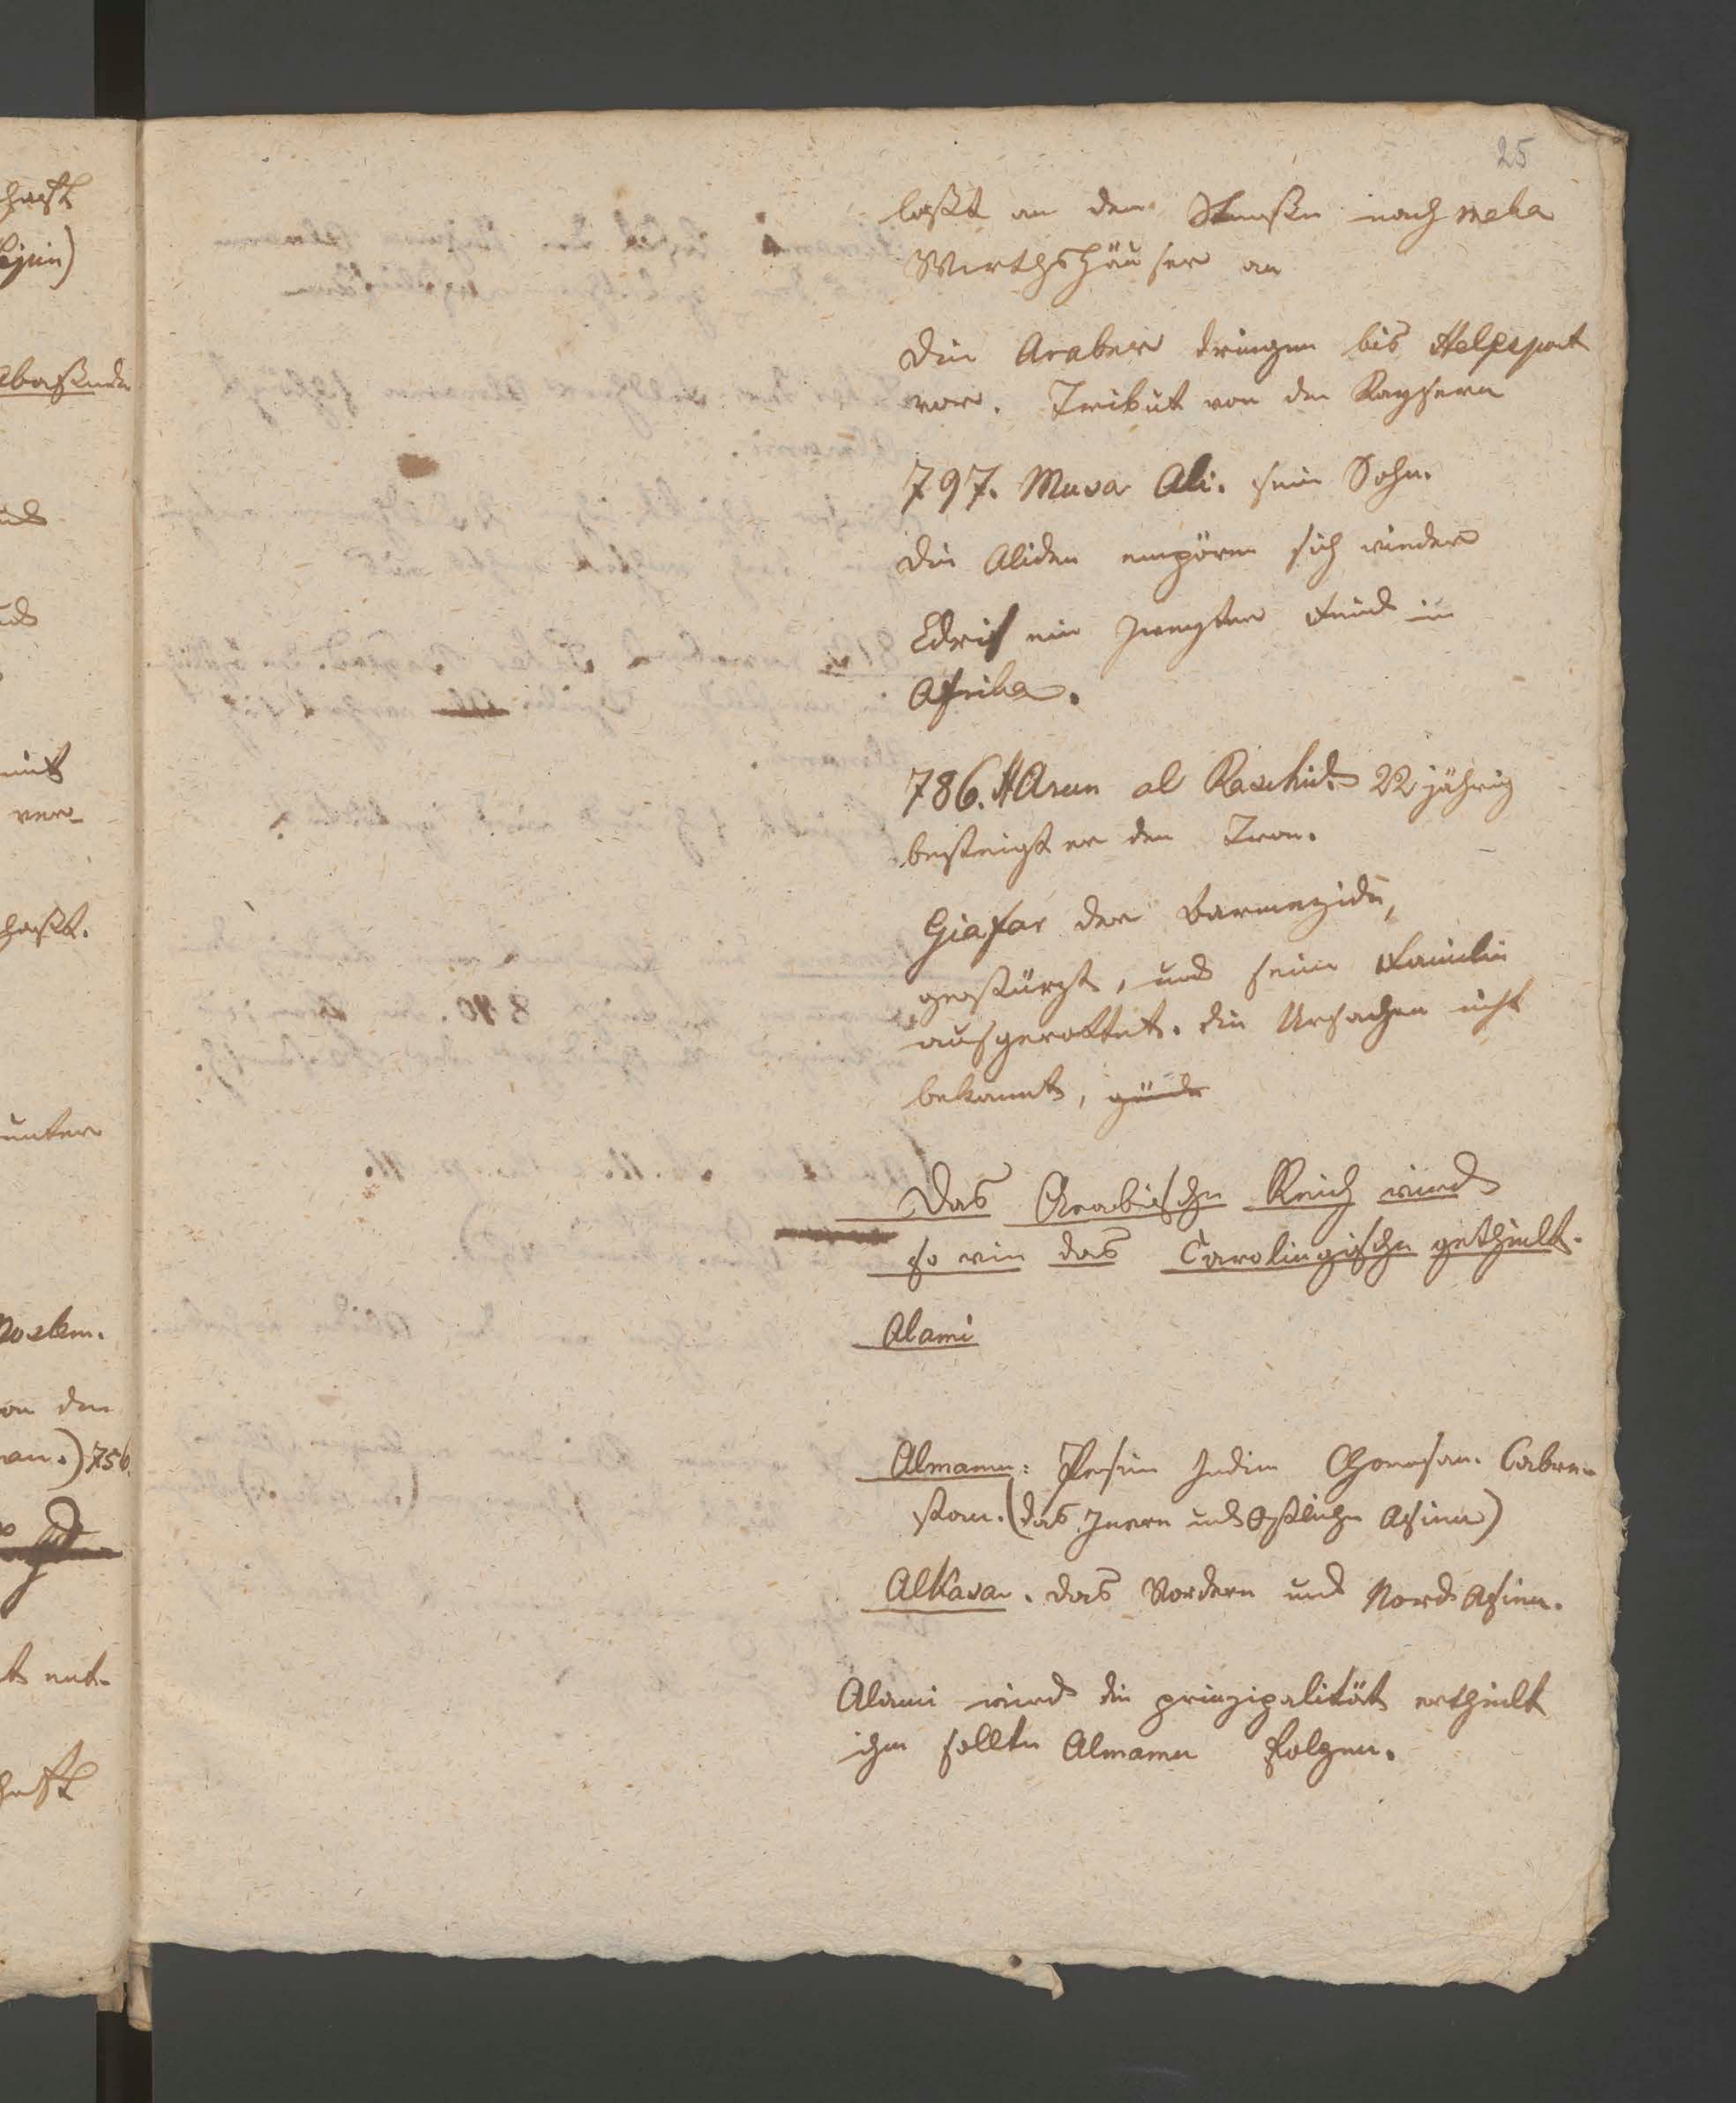 25
laßt an den Straßen nach Meka
Wirthshäuser an
Die Araber dringen bis Helespont
vor. Tribut von den Kaysern
797. Musa Ali. sein Sohn.
Die Aliden empören sich wieder
Edris ein zweyter Feind in
Afrika.
786. Harun al Raschid. 22 jährig
besteigt er den Tron.
Giafar der Barmezide,
gestürzt, und seine Familie
ausgerottet. die Ursachen nicht
bekannt,
Das Arabische Reich wird
so wie das Carolingische getheilt.
Alami
Almamu: Persien Indien Chorasan. Cabre-
stan. (das Innere und Östliche Asien)
Alkasa. das Vordere und Nord Asien.
Alami wird die prinzipalität ertheilt
ihm sollte Almamu folgen.
chaft
Abaßiden
und
mit
ver-
haft.
unter
Moslem.
von den
an.) 756.
ent-
haft